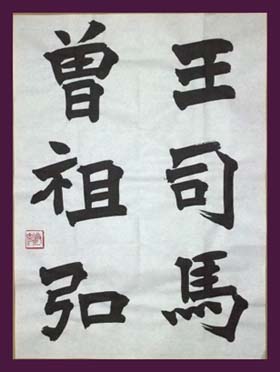 王司馬
曽祖弘